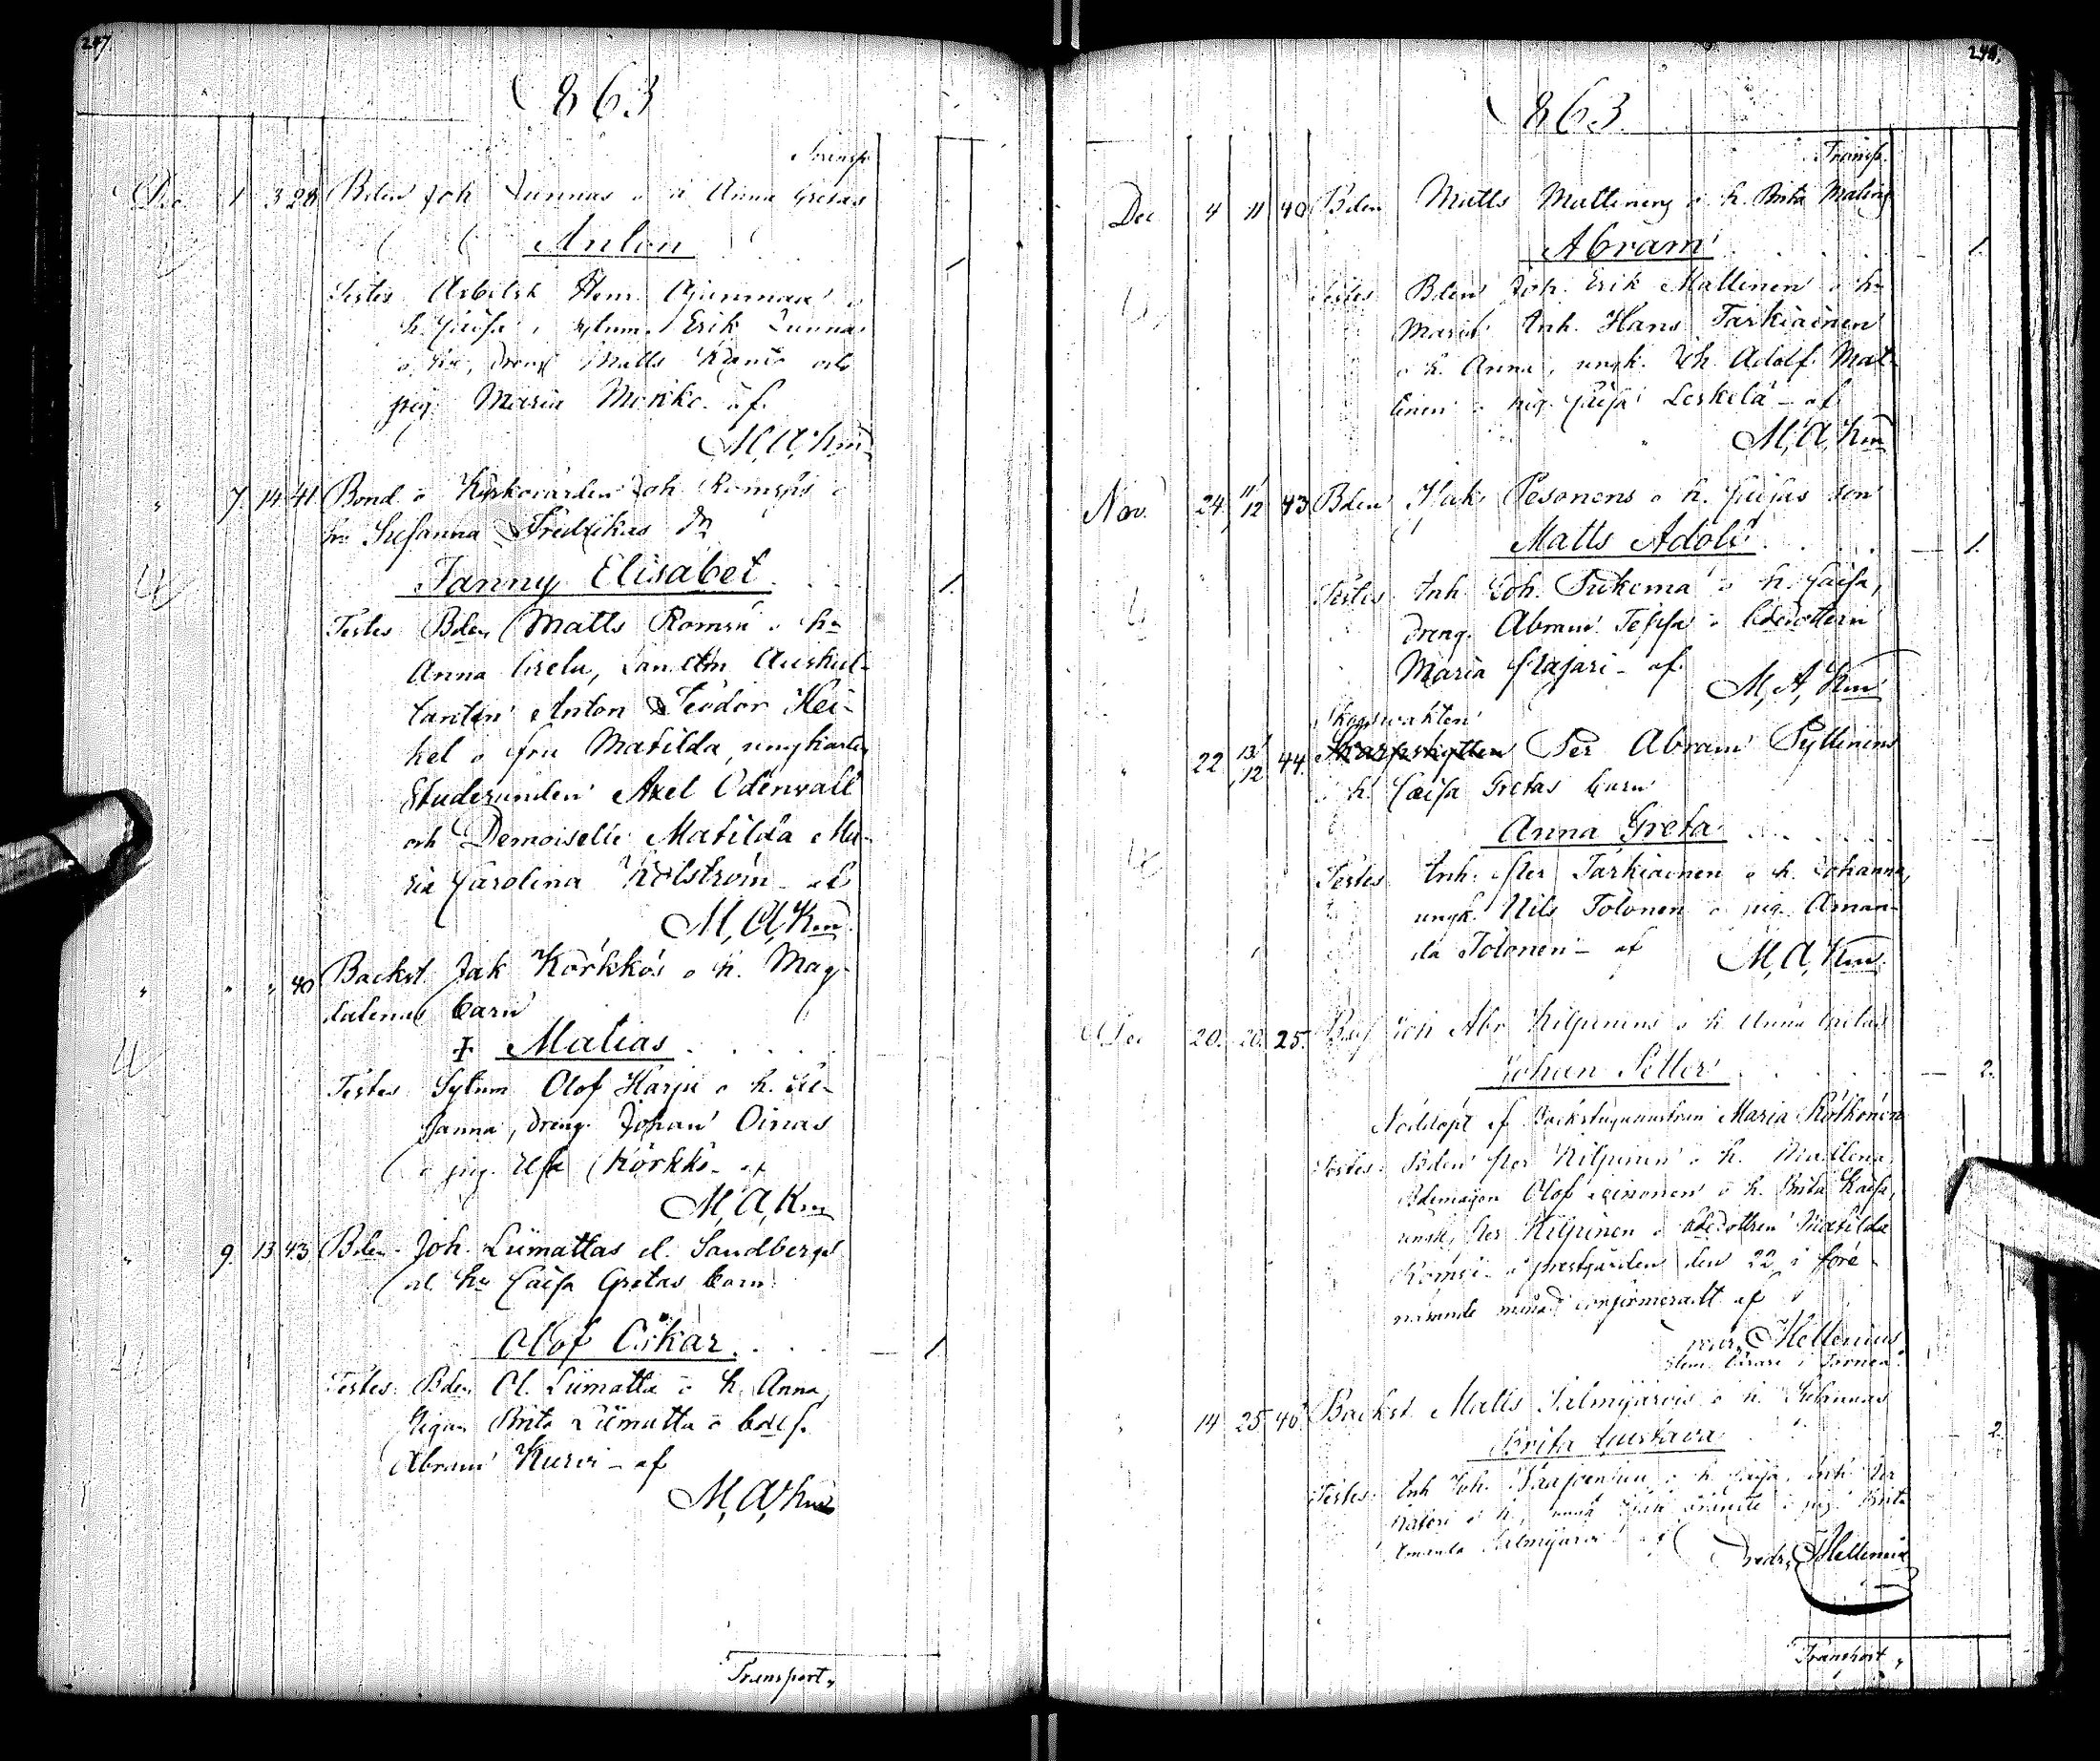 247.
1863
Transp.
Dec. 1 3 28 Bden Joh Junnas o h Anna Gretas
Anton
1
Testes Arbetsk Henr.
h. Caisa, sytum. Erik Junnas
o hu, dreng Matts och
pig. Maria Morkko. af.
M, A, Km
" 7. 14 41 Bond. o Kyrkovärden Joh Romsis o
hu Susanna Fredrikas dr
Fanny Elisabet
1.
Testes Bden Matts Romsi o hu
Anna Greta, Auskul-
tanten Anton Teodor Hei-
kel o fru Matilda, ungkarlen
Studeranden Axel Odenvall
och Demoiselle Matilda Ma-
ria Carolina Kölström - af
M, A, Km
" " " 40 Backst. Jak Körkkös o h. Mag-
dalenas barn
+ Matias
Testes Sytum Olof Harju o h. Su-
sanna, dreng. Johan Oinas
o pig. Ulla Körkkö - af
M, A, Km
" 9. 13 43. Bden. Joh. Liimattas el. Sandbergs
och hu Caisa Gretas barn
Olof Oskar
1.
Testes. Bden Ol. Liimatta o h. Anna,
Pigan Brita Liimatta o bdes.
Abram Kurvi - af
M, A, Km
Transport,
248.
1863.
Transp.
Dec 4 11 40 Bden Matts Mattinens o h. Brita Malins
Abram
1.
Testes Bden Joh. Erik Mattinen o hu
Maria Inh. Hans Tarkiainen
o h. Anna, ungk. Joh Adolf Mat-
tinen o pig. Caisa Leskelä - af
M, A, Km
Nov. 24 11/12 43 Bden Isak Pesonens o h. Caisas son
Matts Adolf
1.
Testes Inh Joh. o h. Caisa,
dreng. Abram o bdedottern
Maria - af
M, A, Km
Skogswakten
" 22 13/12 44. Skarpskytten Per Abram Pyttinens
o h. Caisa Gretas barn
Anna Greta
Testes Inh. Per Tarkiainen o h. Johanna,
ungk. Nils Tolonen o pig. Aman-
da Tolonen - af
M, A, Km
Dec 20. 20. 25. Joh Abr Kilpinens o h Anna Gretas
Johan Petter
2.
Nöddöpt af Backstuguhustrun Maria
Testes. Bden Per Kilpinen o h. Madlena
Bdemågen Olof o h. Brita Kaisa,
ungk. Per Kilpinen o bdedottren Matilda
Romsi - i prestgården den 22 i före-
nämnde månad confirmeradt af
Hellenius
i Torneå.
" 14 25 40. Backst Matts Salmijärvis o h. Johannas
Brita Gustava
2.
Testes. Inh Joh. o h Caisa, Inh Per
o h, Isak o pig. Brita
Amanda Salmijärvi af
Hellenius
Transport,